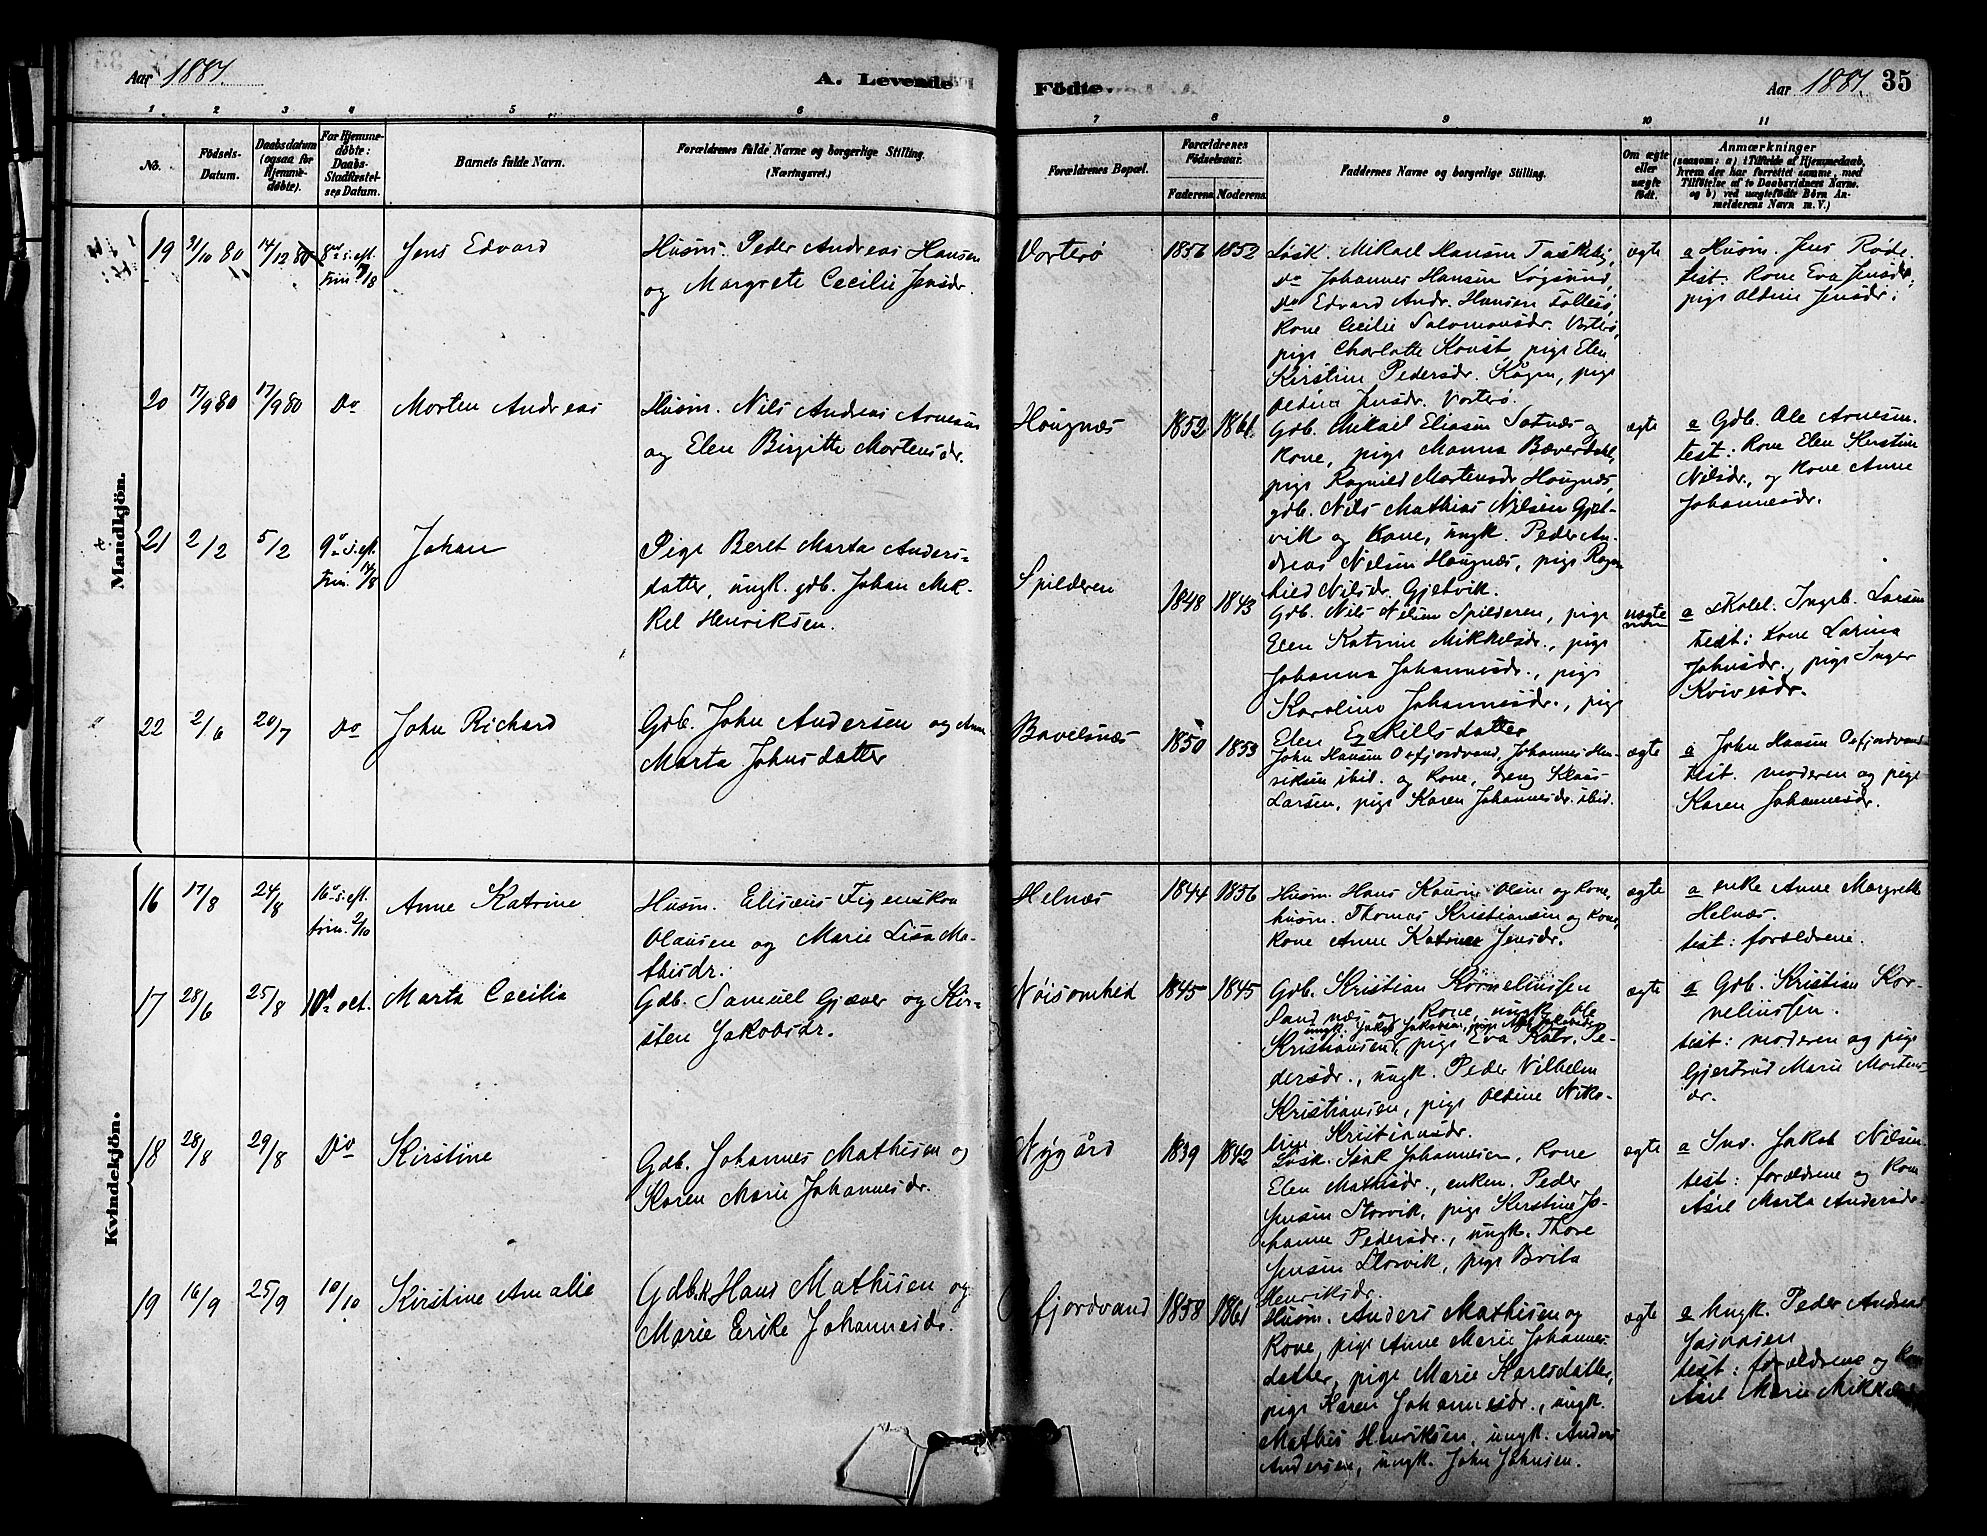 Aar 1881.
A. Levende
Födte.
Aar 1881. 35
1 2 3 4 5 6 7 8 9 10 11
No.
Födsels-
Datum.
Daabsdatum
(ogsaa for
Hjemme-
døbte).
For Hjemme-
døbte:
Daabs-
Stadfæstel-
ses Datum.
Barnets fulde Navn.
Forældrenes fulde Navne og borgerlige Stilling.
(Næringsvei.)
Forældrenes Bopæl.
Forældrenes
Födselsaar.
Faderens. Moderens.
Faddernes Navne og borgerlige Stilling.
Om ægte
eller
uægte
født.
Anmærkninger
(saasom: a) i Tilfælde af Hjemmedaab,
hvem der har forrettet samme, med
Tilføielse af to Daabsvidners Navne.
og b) ved uægtefødte Børn An-
melderens Navn m. V.)
Mandkjön.
19 31/10 80 14/12 80 8de s. eft.
Trin. 7/8
Jens Edvard
Husm. Peder Andreas Hansen
og Margrete Cecilie Jensdr.
Vorterø
1856 1852
Løsk. Mikael Hansen
Do Johannes Hansen Løgsund,
Do Edvard Andr. Hansen
Kone Cecilie Salomonsdr. Vorterø,
pige Charlotte pige Elen
Kirstine Pedersdr. Kågen, pige
Oldine Jensdr. Vorterø.
ægte
a Husm. Jens
test. Kone Eva Jensdr,
pige Oldine Jensdr.
20 17/9 80 17/9 80 Do
Morten Andreas
Husm. Nils Andreas Arnesen
og Elen Birgitte Mortensdr.
Hougnæs
1852 1861.
Gdb. Mikail Eliasen Sotnæs og
Kone, pige Manna Bæverdahl,
pige Ragnild Mortensdr Hougnæs,
gdb. Nils Mathias Nilsen Gjøt-
vik og Kone, ungk. Peder An-
dreas Nilsen Hougnæs, pige Ragn
hild Nilsdr. Gjøtvik.
ægte
a Gdb. Ole Arnesen.
test: Kone Elen Kirstine
Nilsdr., og Kone Anne
Johannesdr.
21 2/2 5/2 9de s. eft.
Trin. 14/8
Johan
Pige Beret Marta Anders-
datter, ungk. gdb. Johan Mik-
kel Henriksen.
Spilderen
1848 1843
Gdb. Nils Nilsen Spilderen, pige
Elen Katrine Mikkelsdr., pige
Johanna Johannesdr., pige
Karoline Johannesdr., pige
Elen Ezekillsdatter
uægte
a Skolel. Ingeb. Larsen
test: Kone Larina
Johnsdr., pige Inger
Kvivesdr.
22 2/6 20/7 Do
John Richard
Gdb. John Andersen og Ane
Marta Johnsdatter
Bavelsnæs
1850 1853
John Hansen Oxfjordvand, Johannes Hen-
riksen ibid. og Kone, dreng Klaus
Larsen, pige Karen Johannesdr. ibid.
ægte
a John Hansen Oxfjordvand
test. moderen og pige
Karen Johannesdr.
Kvindekjön.
16 17/8 24/8 16de s. eft.
Trin. 2/10
Anne Katrine
Husm. Elisæus Figenskou
Olausen og Marie Lisa Ma-
thisdr.
Helnæs
1844 1856
Husm. Hans Olsen og Kone,
husm. Thomas Kristiansen og Kone,
Kone Anne Katrine Jensdr.
ægte
a enke Anne Margrethe
Helnæs.
test: forældrene.
17 28/6 25/8 10de oct.
Marta Cecilia
Gdb. Samuel Gjæver og Kir-
sten Jakobsdr.
Nøisomhed
1845 1845
Gdb. Kristian Kornelinssen
Sandnæs og Kone, ungk Ole
ungk. Jakob Jakobsen, pige Jakobsdr.
Kristiansen, pige Eva Katr. Pe-
dersdr., ungk. Peder Vilhelm
Kristiansen, pige Oldine Niko-
line Kristiansdr.
ægte
a Gdb. Kristian Kor-
nelinssen.
test: moderen og pige
Gjertrud Marie Mortens-
dr.
18 28/8 29/8 Do
Kirstine
Gdb. Johannes Mathisen og
Karen Marie Johannesdr.
Nygård
1839 1842
Løsk. Isak Johannesen, Kone
Elen Mathisdr., enkem. Peder
Jensen Storvik, pige Kirstine Jo-
hanne Pedersdr., ungk. Thore
Jensen Storvik, pige Brita
Henriksdr.
ægte
a Ind. Jakob Nilsen
test: forældrene og Kone
Asil Marta Andersdr.
19 16/9 25/9 10/10
Kirstine Amalie
Gdb.k Hans Mathisen og
Marie Erike Johannesdr.
fjordvand
1858 1861
Husm. Anders Mathisen og
Kone, pige Anne Marie Johannes-
datter, pige Marie Karlsdatter,
pige Karen Johannesdr., ungk.
Mathis Henriksen, ungk. Anders
Andersen, ungk. John Johnsen.
ægte
a Ungk. Peder Andreas
test: forældrene og Kone
Asil Marie